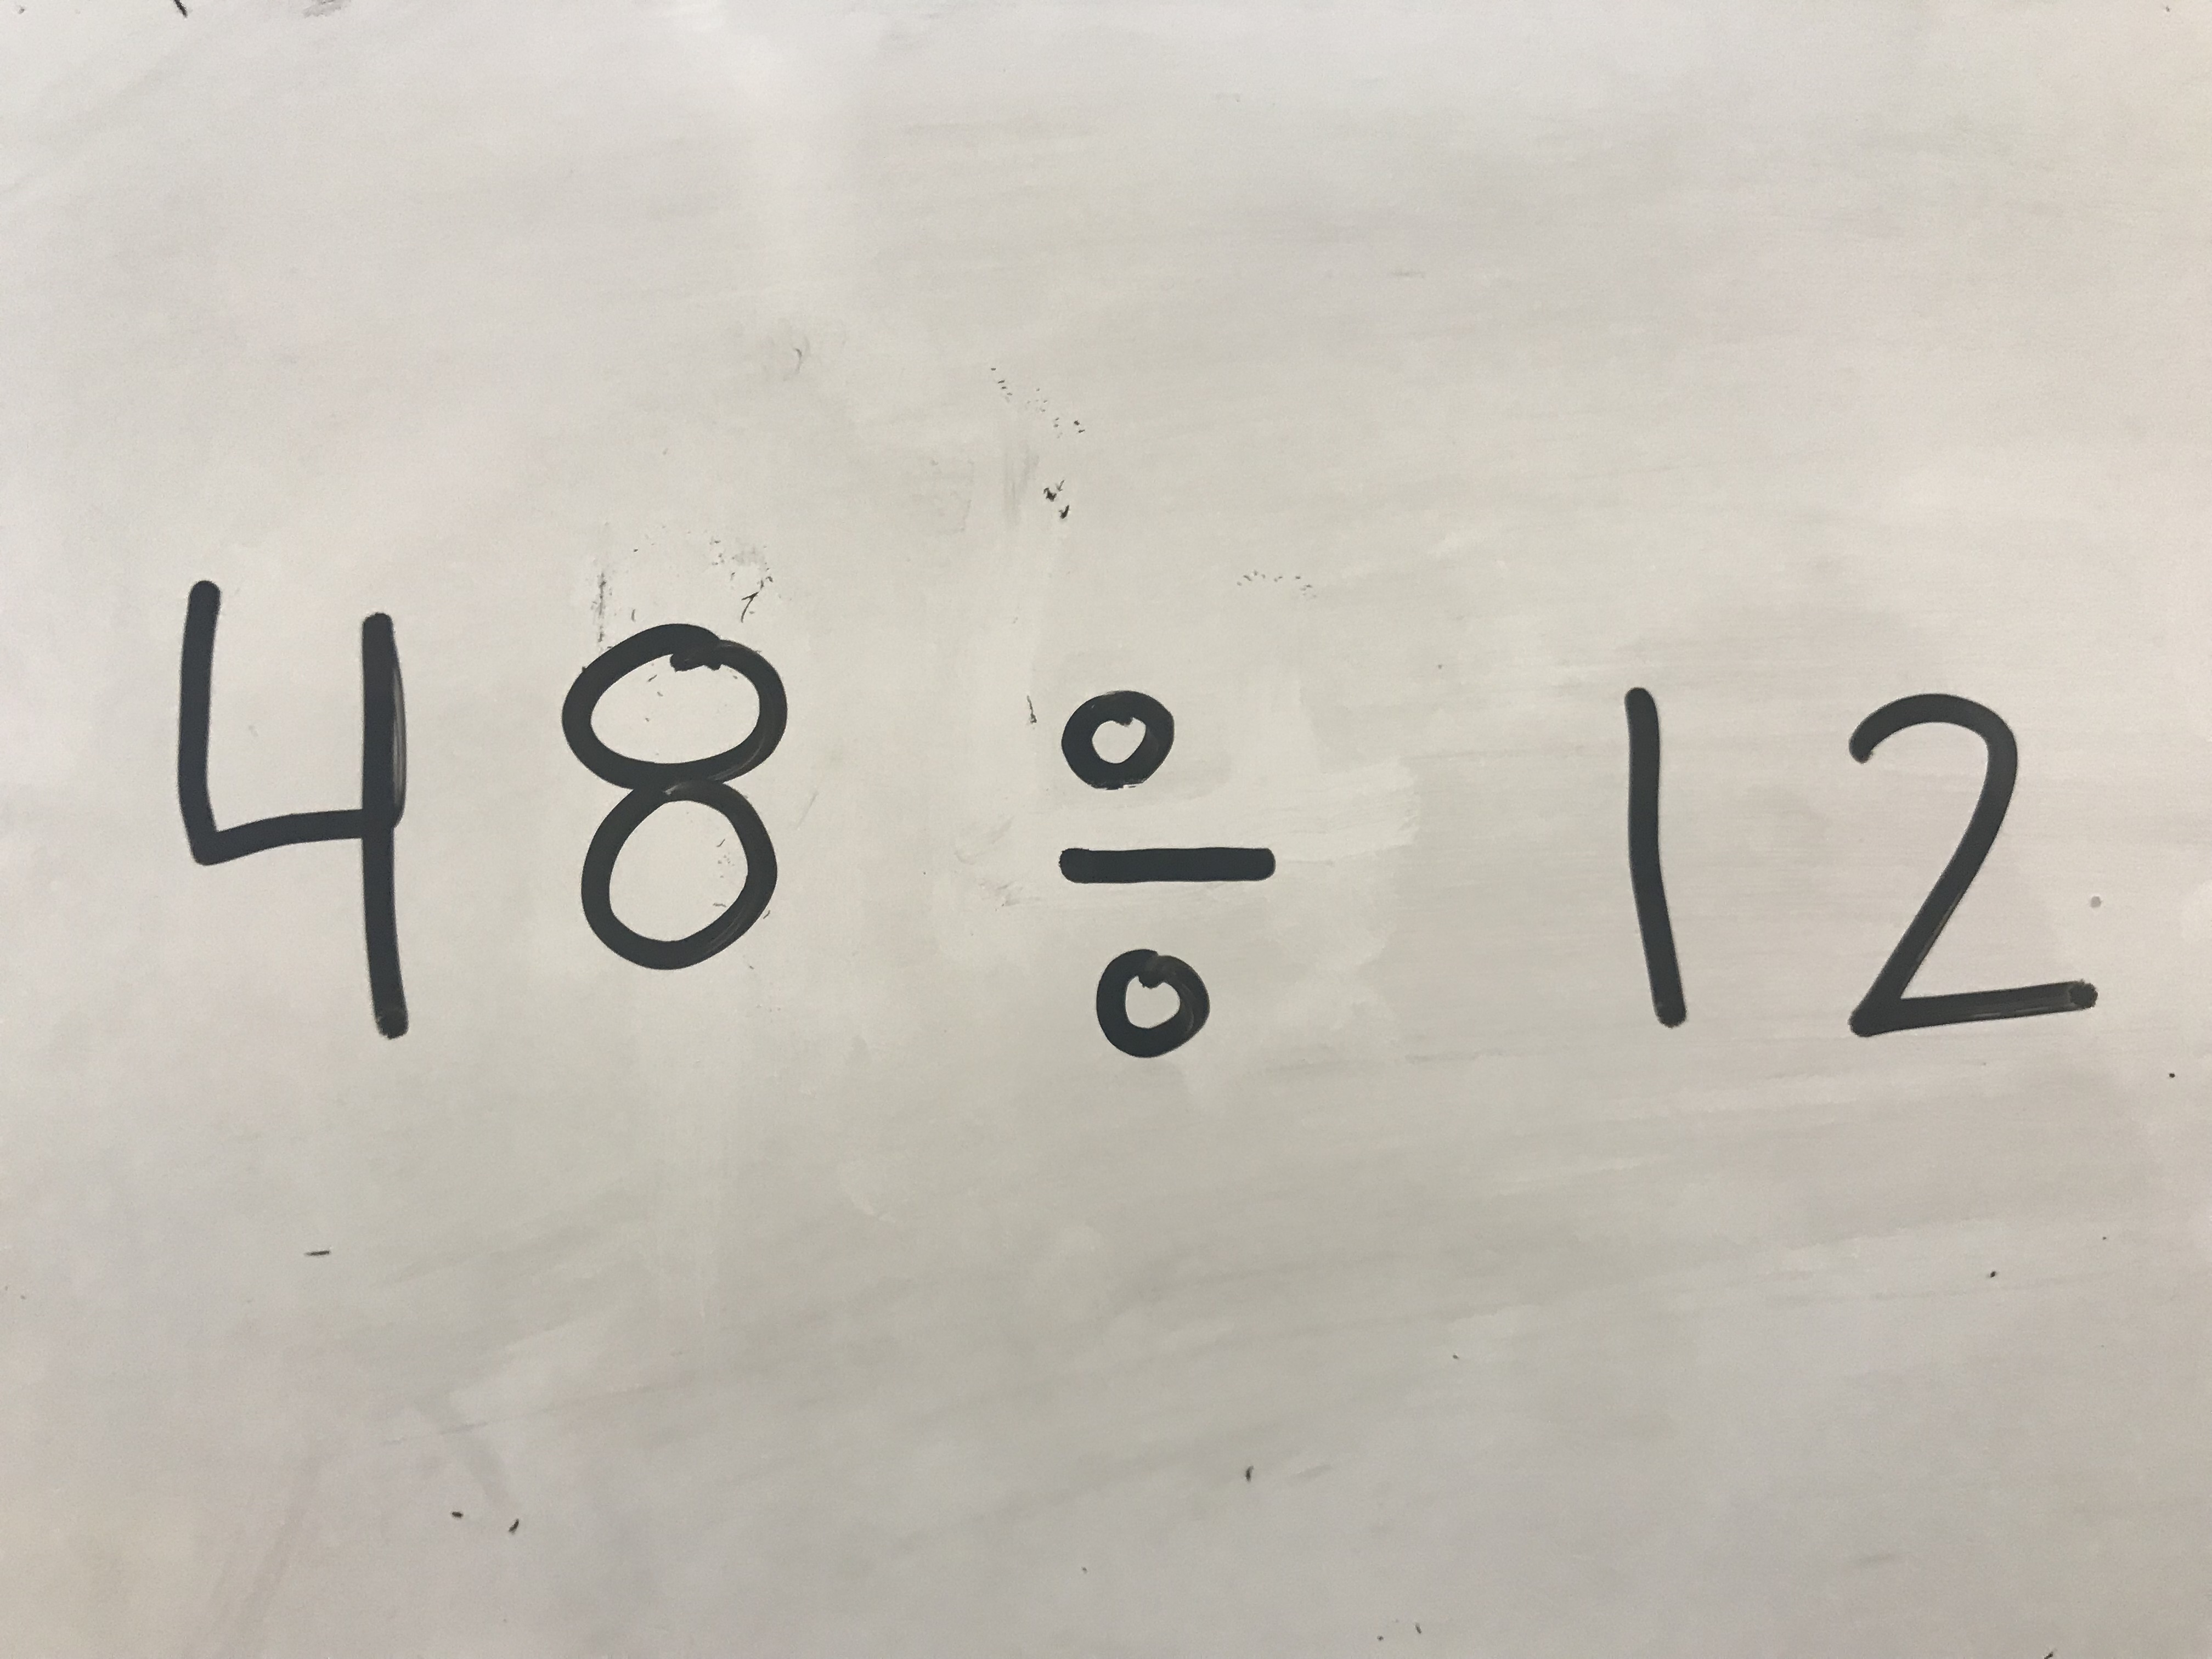 48 ÷ 12